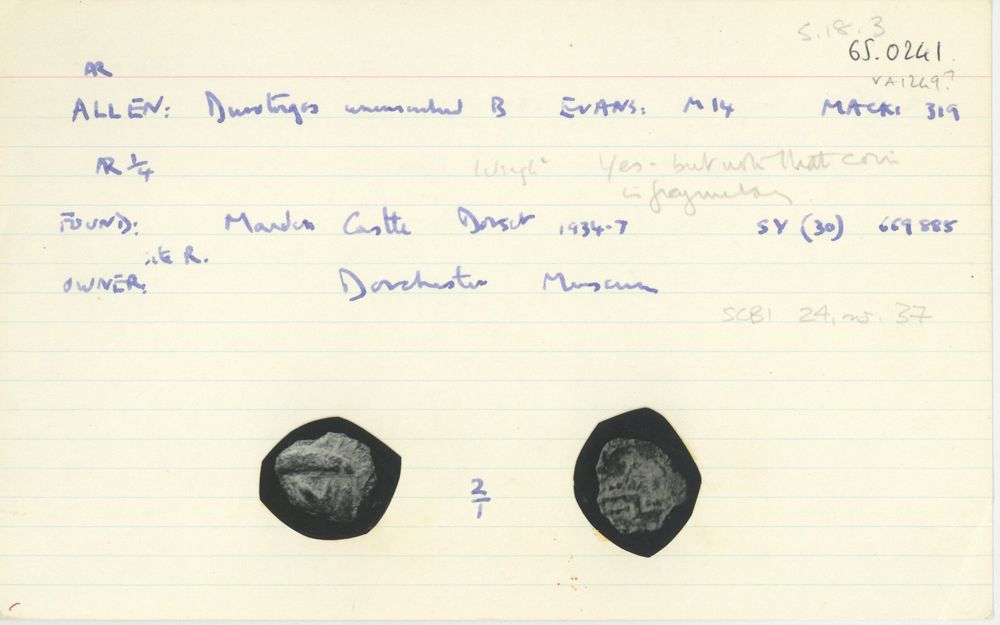 S.18.3
65.0241
VA1249?
AR
ALLEN: Durotriges uninscribed B EVANS: M 14 MACK: 319
AR 1/4
Weight Yes - but note that coin
is fragmentary.
FOUND: Maiden Castle Dorset 1934-7 SY (30) 669885
site R.
OWNER: Dorchester Museum
SCBI 24, no. 37
2/1